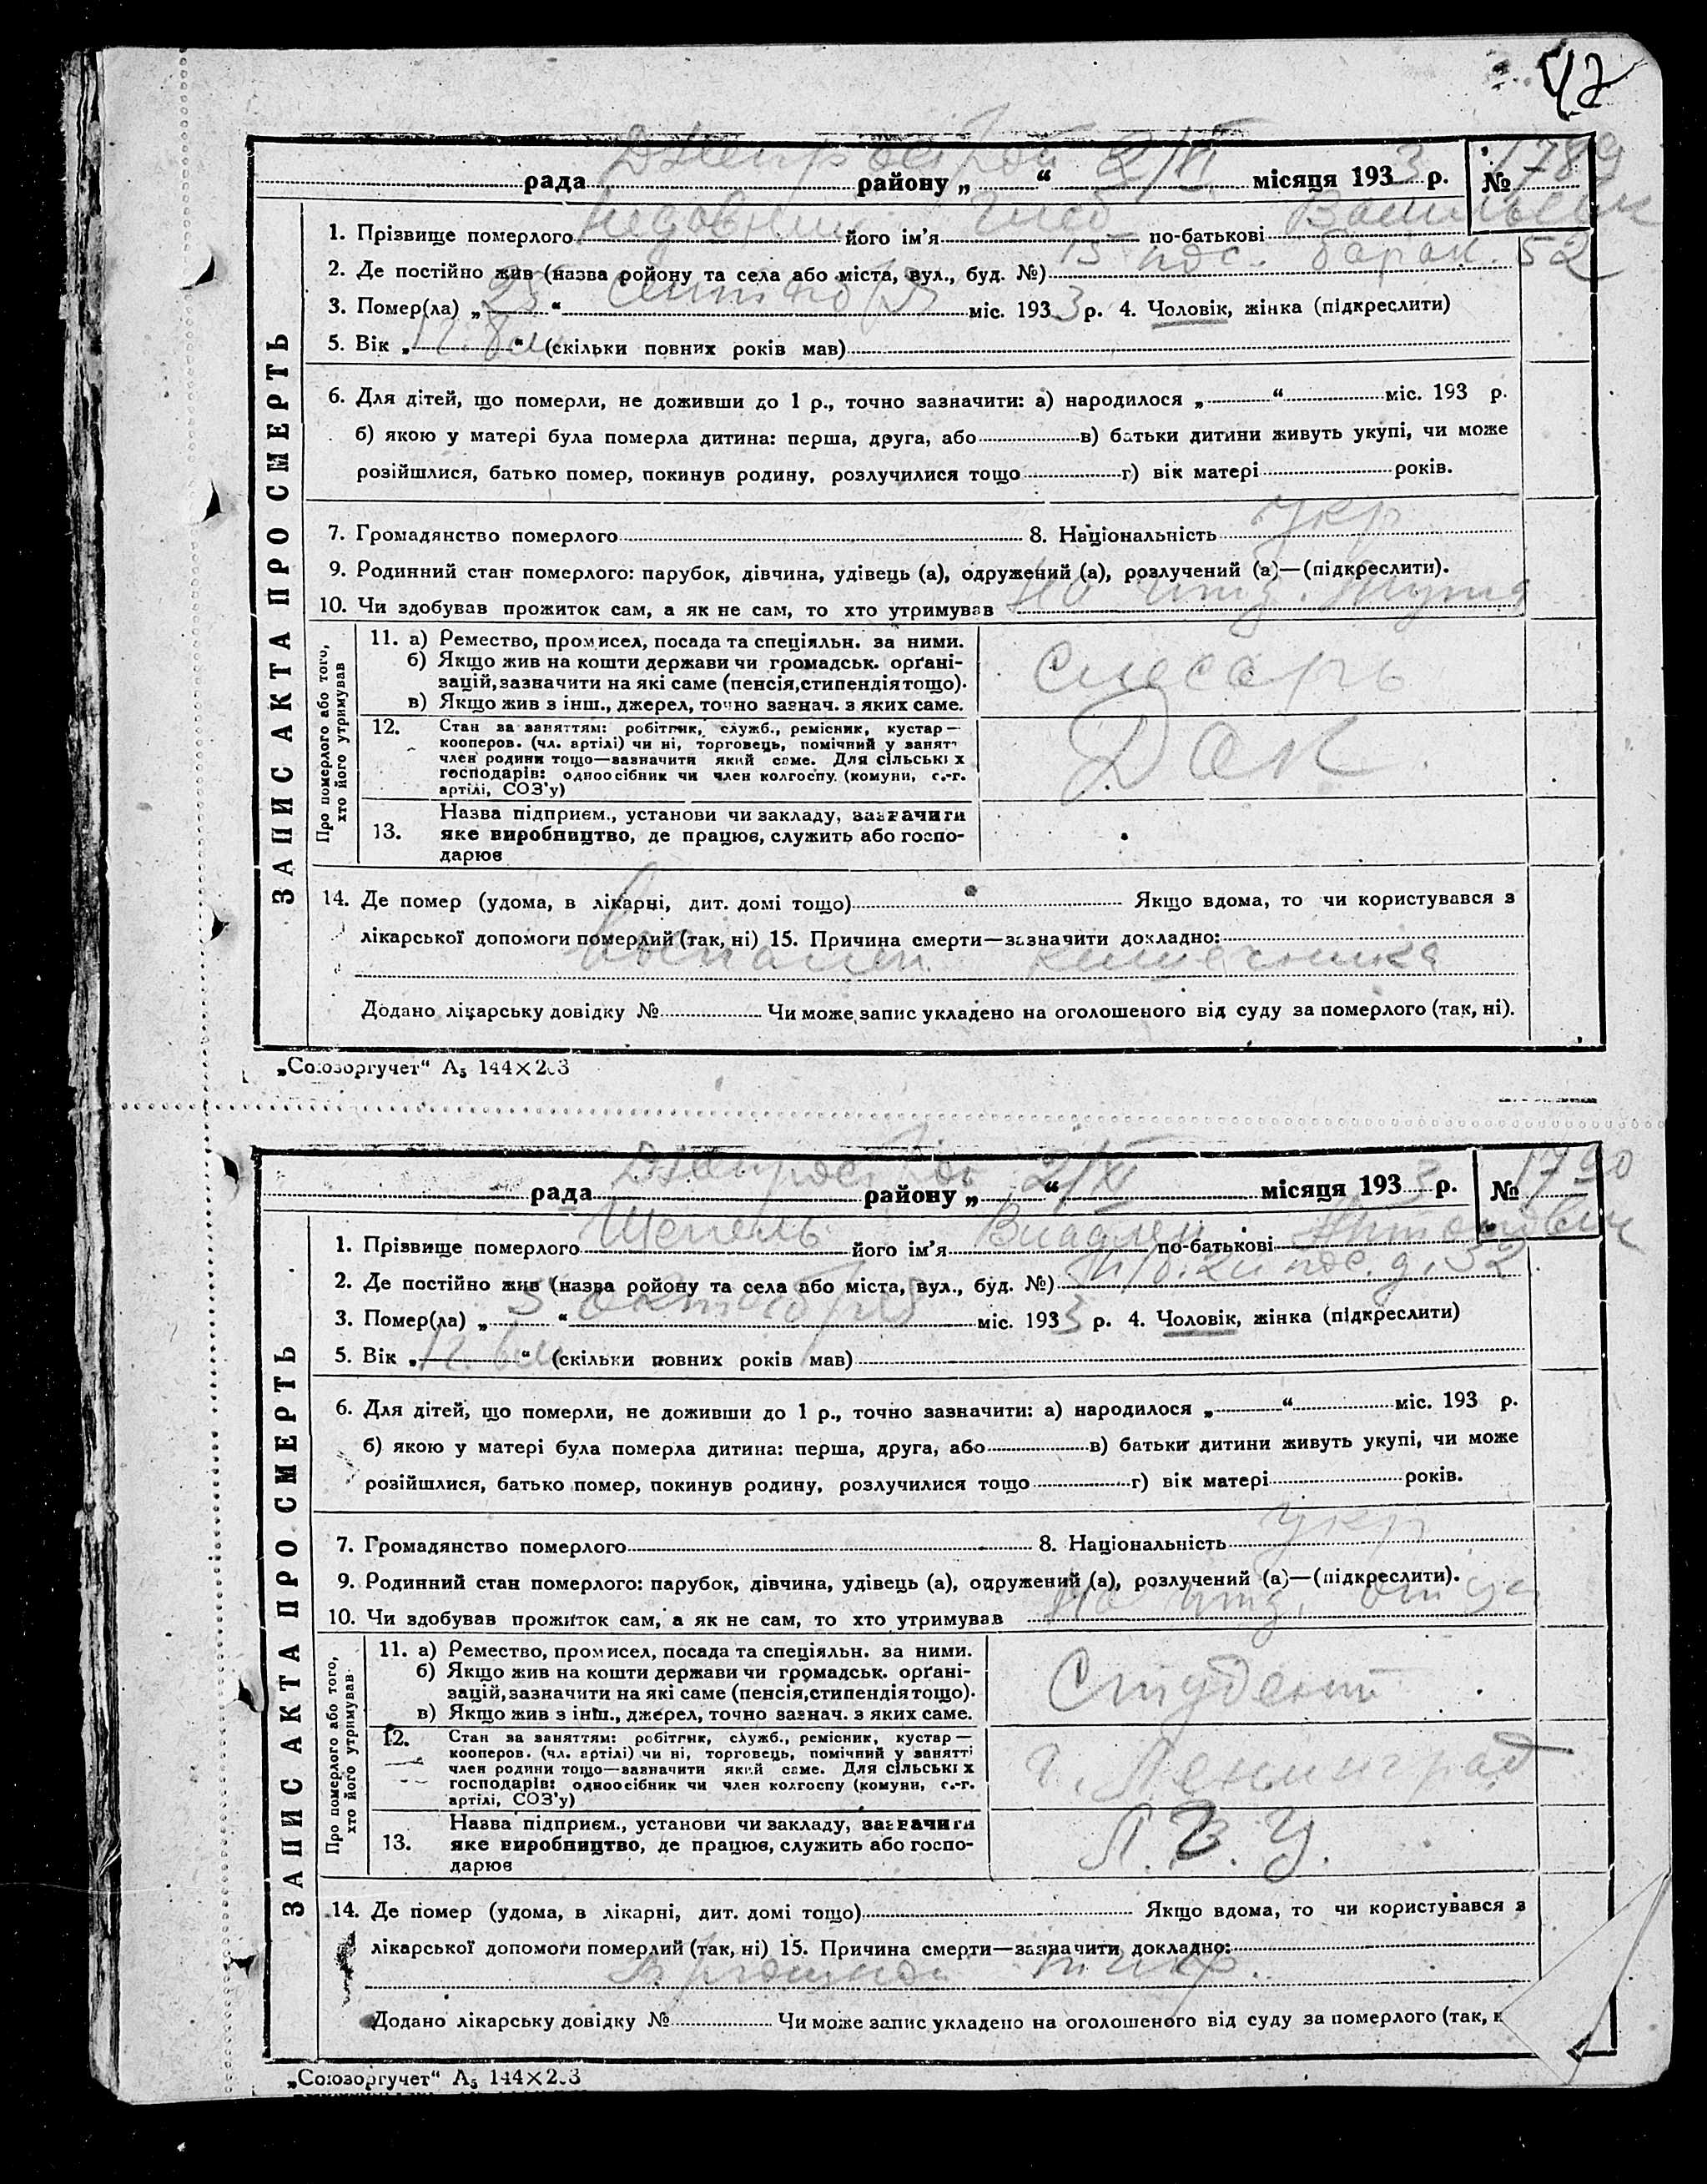 42
Днепрострой 2/XI
рада району „ “ місяця 1933 р. № 1789
1. Прізвище померлого його ім'я Глеб по-батькові Васильевич
2. Де постійно жив (назва ройону та села або міста, вул., буд. №) 15 пос. барак. 52
3. Помер(ла) „25“ сентября міс. 1933 р. 4. Чоловік, жінка (підкреслити)
5. Вік „ 8 м “ (скільки повних років мав)
6. Для дітей, що померли, не доживши до 1 р., точно зазначити: а) народилося „ “ міс. 193 р.
б) якою у матері була померла дитина: перша, друга, або в) батьки дитини живуть укупі, чи може
розійшлися, батько помер, покинув родину, розлучилися тощо г) вік матері років.
7. Громадянство померлого 8. Національність укр
9. Родинний стан померлого: парубок, дівчина, удівець (а), одружений (а), розлучений (а)—(підкреслити).
10. Чи здобував прожиток сам, а як не сам, то хто утримував На изд.
ЗАПИС АКТА ПРО СМЕРТЬ
Про померлого або того, хто його утримував
11. а) Ремество, промисел, посада та спеціяльн. за ними.
б) Якщо жив на кошти держави чи громадськ. орґані-
зацій, зазначити на які саме (пенсія, стипендія тощо).
в) Якщо жив з інш., джерел, точно зазнач. з яких саме.
Слесарь
12. Стан за заняттям: робітник, служб., ремісник, кустар—
кооперов. (чл. артілі) чи ні, торговець, помічний у занятті
член родини тощо—зазначити який саме. Для сільськіх
господарів: одноосібник чи член колгоспу. (комуни, с.-г.
артілі, СОЗ'у)
Дак
13. Назва підприєм., установи чи закладу, зазначити
яке виробництво, де працює, служить або госпо-
дарює
14. Де помер (удома, в лікарні, дит. домі тощо) Якщо вдома, то чи користувався з
лікарської допомоги померлий (так, ні) 15. Причина смерти—зазначити докладно:
Воспален. кишечника
Додано лікарську довідку № Чи може запис укладено на оголошеного від суду за померлого (так, ні).
„Союзоргучет“ А5 144×203
Днепрострой 2/XI
рада району „ “ місяця 1933 р. № 1790
1. Прізвище померлого Шепель його ім'я Владлен по-батькові Антонович
2. Де постійно жив (назва ройону та села або міста, вул., буд. №) пос. д. 32
3. Помер(ла) „5“ октября міс. 1933 р. 4. Чоловік, жінка (підкреслити)
5. Вік „ 6 м “ (скільки повних років мав)
6. Для дітей, що померли, не доживши до 1 р., точно зазначити: а) народилося „ “ міс. 193 р.
б) якою у матері була померла дитина: перша, друга, або в) батьки дитини живуть укупі, чи може
розійшлися, батько помер, покинув родину, розлучилися тощо г) вік матері років.
7. Громадянство померлого 8. Національність укр
9. Родинний стан померлого: парубок, дівчина, удівець (а), одружений (а), розлучений (а)—(підкреслити).
10. Чи здобував прожиток сам, а як не сам, то хто утримував На изд. отца
ЗАПИС АКТА ПРО СМЕРТЬ
Про померлого або того, хто його утримував
11. а) Ремество, промисел, посада та спеціяльн. за ними.
б) Якщо жив на кошти держави чи громадськ. орґані-
зацій, зазначити на які саме (пенсія, стипендія тощо).
в) Якщо жив з інш., джерел, точно зазнач. з яких саме.
Студент
12. Стан за заняттям: робітник, служб., ремісник, кустар—
кооперов. (чл. артілі) чи ні, торговець, помічний у занятті
член родини тощо—зазначити який саме. Для сільськіх
господарів: одноосібник чи член колгоспу (комуни, с.-г.
артілі, СОЗ'у)
г. Ленинград
13. Назва підприєм., установи чи закладу, зазначити
яке виробництво, де працює, служить або госпо-
дарює
14. Де помер (удома, в лікарні, дит. домі тощо) Якщо вдома, то чи користувався з
лікарської допомоги померлий (так, ні) 15. Причина смерти—зазначити докладно:
Брюшной тиф.
Додано лікарську довідку № Чи може запис укладено на оголошеного від суду за померлого (так, н
„Союзоргучет“ А5 144×203